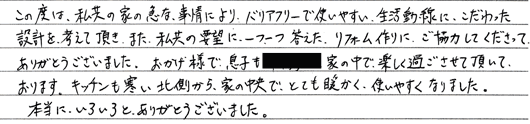 この度は、私共の家の急な事情により、バリアフリーで使いやすい生活動線に、こだわった
設計を考えて頂き、また、私共の要望に一つ一つ答えた、リフォーム作りに、ご協力してくださって、
ありがとうございました。おかげ様で、息子も 家の中で、楽しく過ごさせて頂いて、
おります。キッチンも寒い北側から、家の中央で、とても暖かく、使いやすくなりました。
本当に、いろいろと、ありがとうございました。